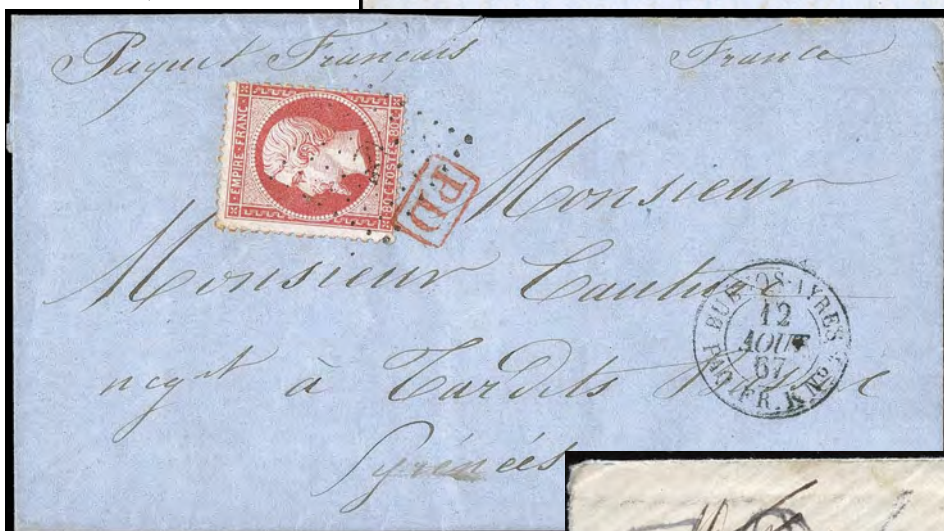 Paquet Français France
EMPIRE FRANC
80 C POSTES 80 C
PD
Monsieur
Monsieur
BUENOS-AYRES
12
AOUT
67
PAQ. FR. K Nº
negt à Tardets
Pyrénées